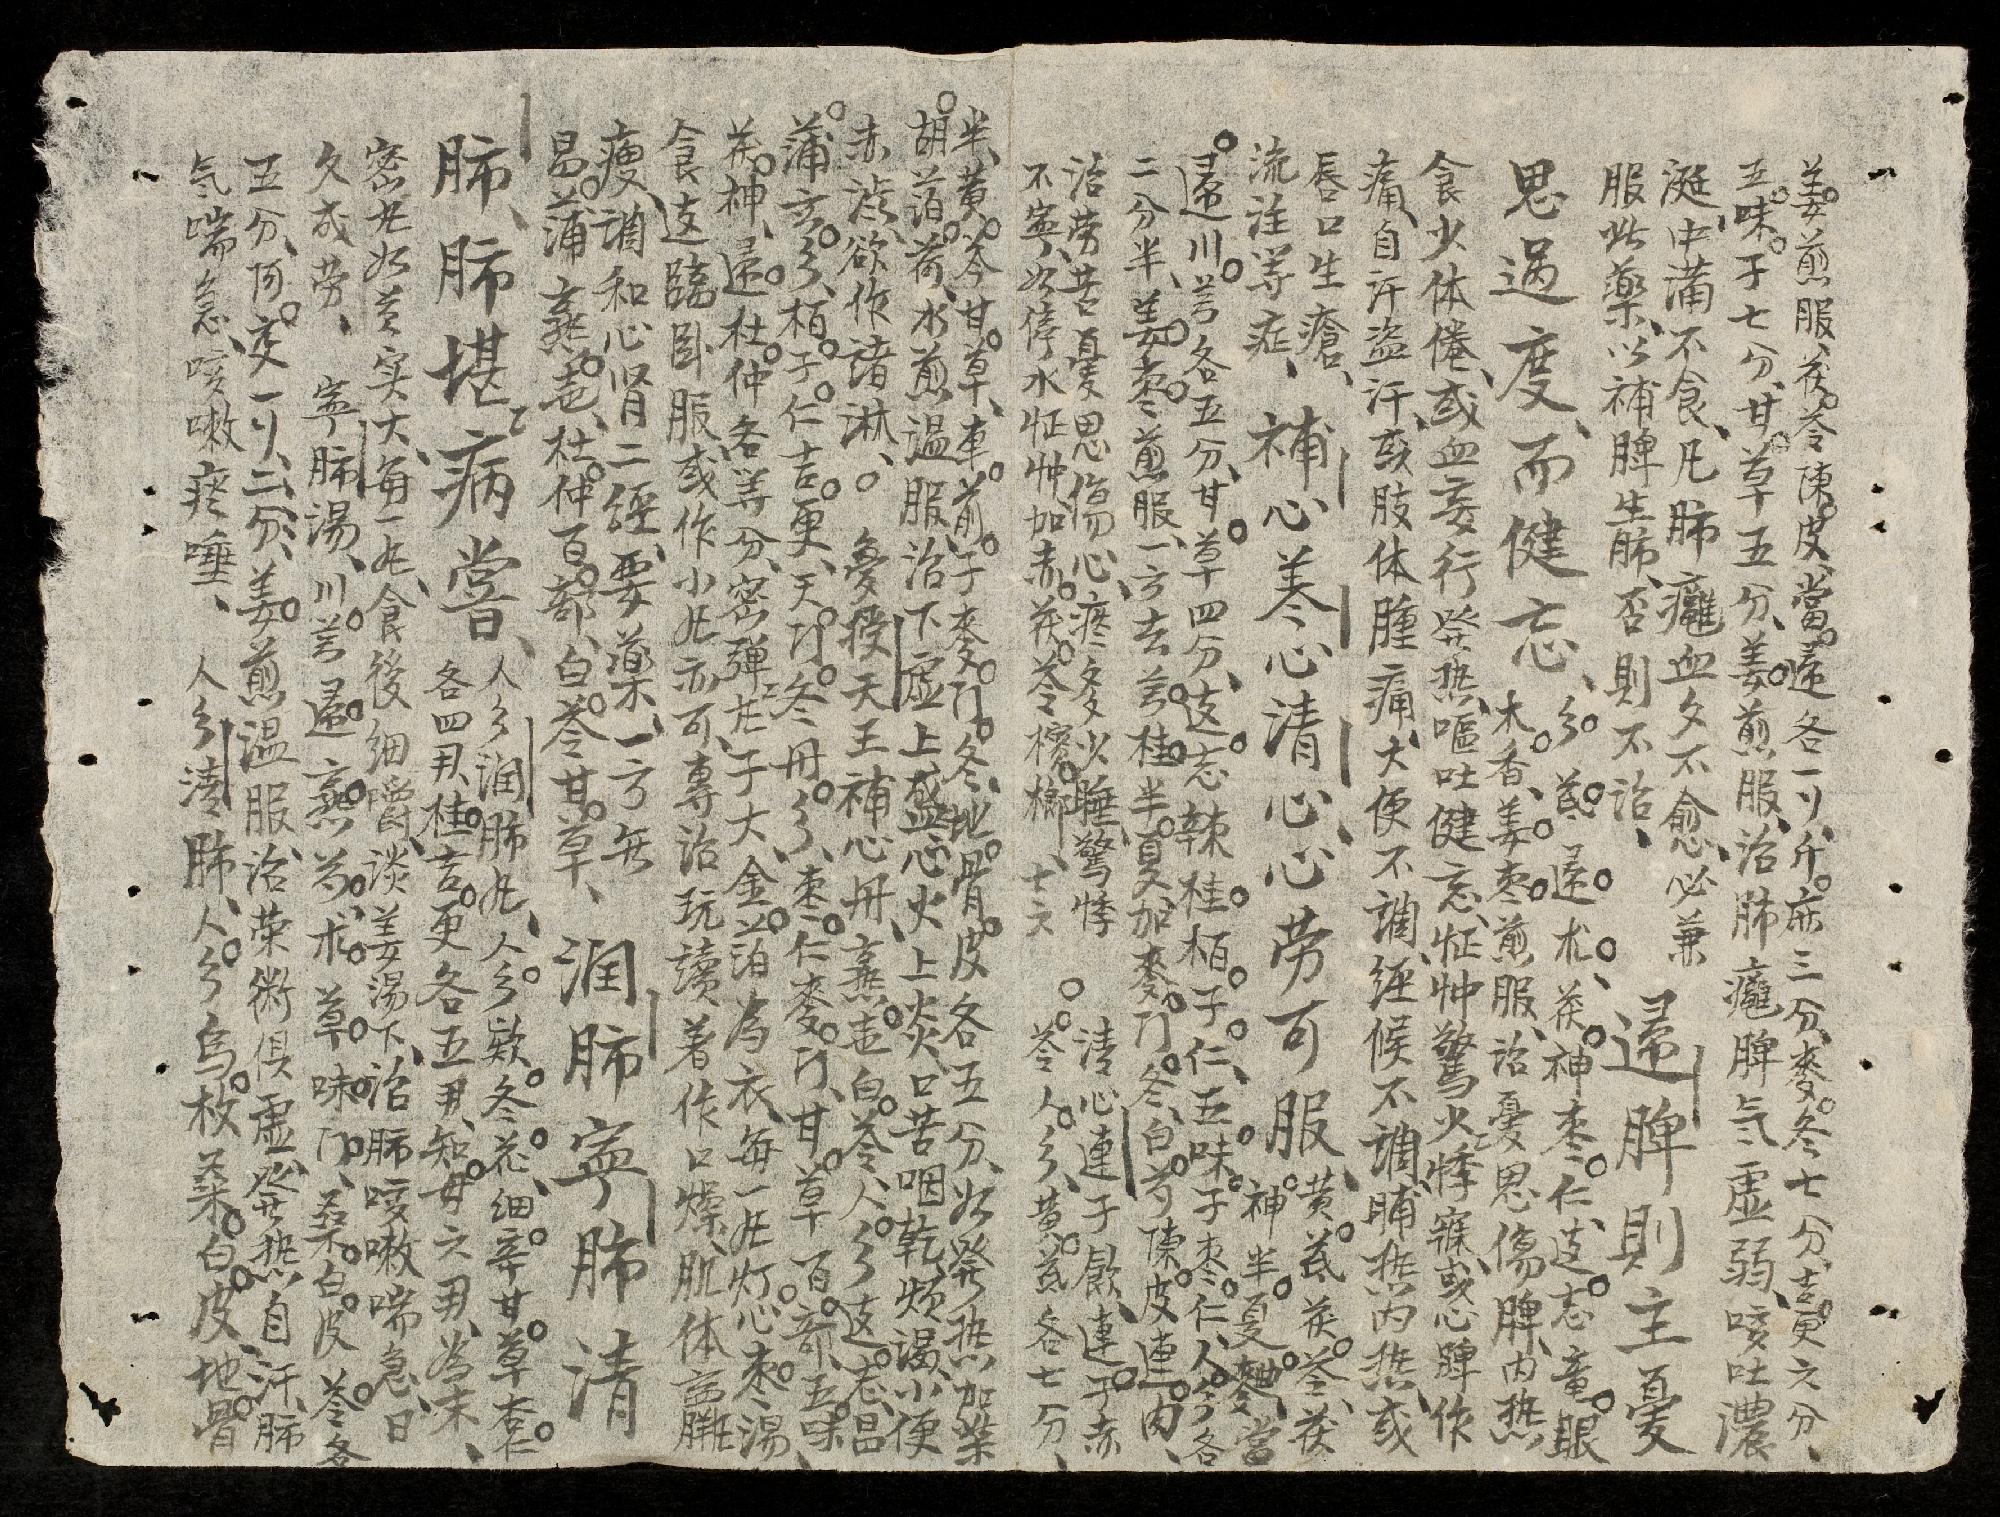 姜煎服、茯苓陳皮、當歸各一刂、升麻三分、麥冬七分、吉更六分、
五味子七分、甘草五分、姜煎服、治肺癰脾气虚弱、咳吐濃
涎、中滿不食、凡肺癰血久不愈、必兼
服此藥、以補脾生肺、否則不治、
歸脾則主憂
思過度、而健忘、
參芪歸术、茯神棗仁、远志竜眼
木香、姜棗煎服、治憂思傷脾、内热
食少体倦、或血妄行、發热嘔吐健忘、怔忡驚悸少寐、或心脾作
痛、自汗盗汗、或肢体腫痛、大便不調、經候不調、晡热内热、或
唇口生瘡、
流注等症、
補心養心清心、心劳可服、
黄芪茯苓、茯
神半夏麯、當
歸川芎各五分、甘草四分、远志辣桂栢子仁、五味子棗仁、人參各
二分半、姜棗煎服、一方去芎桂半夏、加麥门冬、白芍陳皮連肉、
治劳苦憂思傷心、疼多少睡、驚悸
不寧、如停水怔忡加赤茯苓檳榔、
清心連子飲、連子赤
苓人參、黄芪各七分、
半、黄芩甘草、車前子麥门冬、地骨皮各五分、如發热加柴
胡萡荷、水煎温服、治下虚上盛、心火上炎、口苦咽乾煩渴、小便
赤澁、欲作諸淋、。夢授天王補心丹、熟芐白苓、人參远志、昌
蒲玄參、栢子仁吉更、天门冬丹參、棗仁麥门、甘草百部、五味
茯神、歸杜仲各等分、密弹丸子大、金萡為衣、每一丸灯心棗湯、
食远臨卧服、或作小丸亦可、專治玩讀著作、口燥、肌体羸
瘦、調和心肾二經要藥、一方无
昌蒲熟芐、杜仲百部、白苓甘草、
潤肺寧肺清
肺、肺堪病嘗、
人參潤肺丸、人參款冬花、細辛甘草杏仁
各四刄、桂吉更各五刄、知母六刄、為末、
密丸如芡实大、每一丸、食後細嚼、淡姜湯下、治肺咳嗽喘急、日
久成劳、寧肺湯、川芎歸熟芍、术草味门、桑白皮苓各
五分、阿交一刂、二分、姜煎温服、治荣術俱虚、發热自汗、肺
气喘急、咳嗽痰唾、人參清肺、人參烏枚、桑白皮、地骨